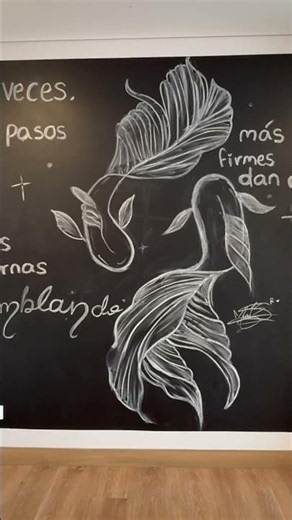 veces.
pasos
más
firmes
dan
s
rnas
mblando